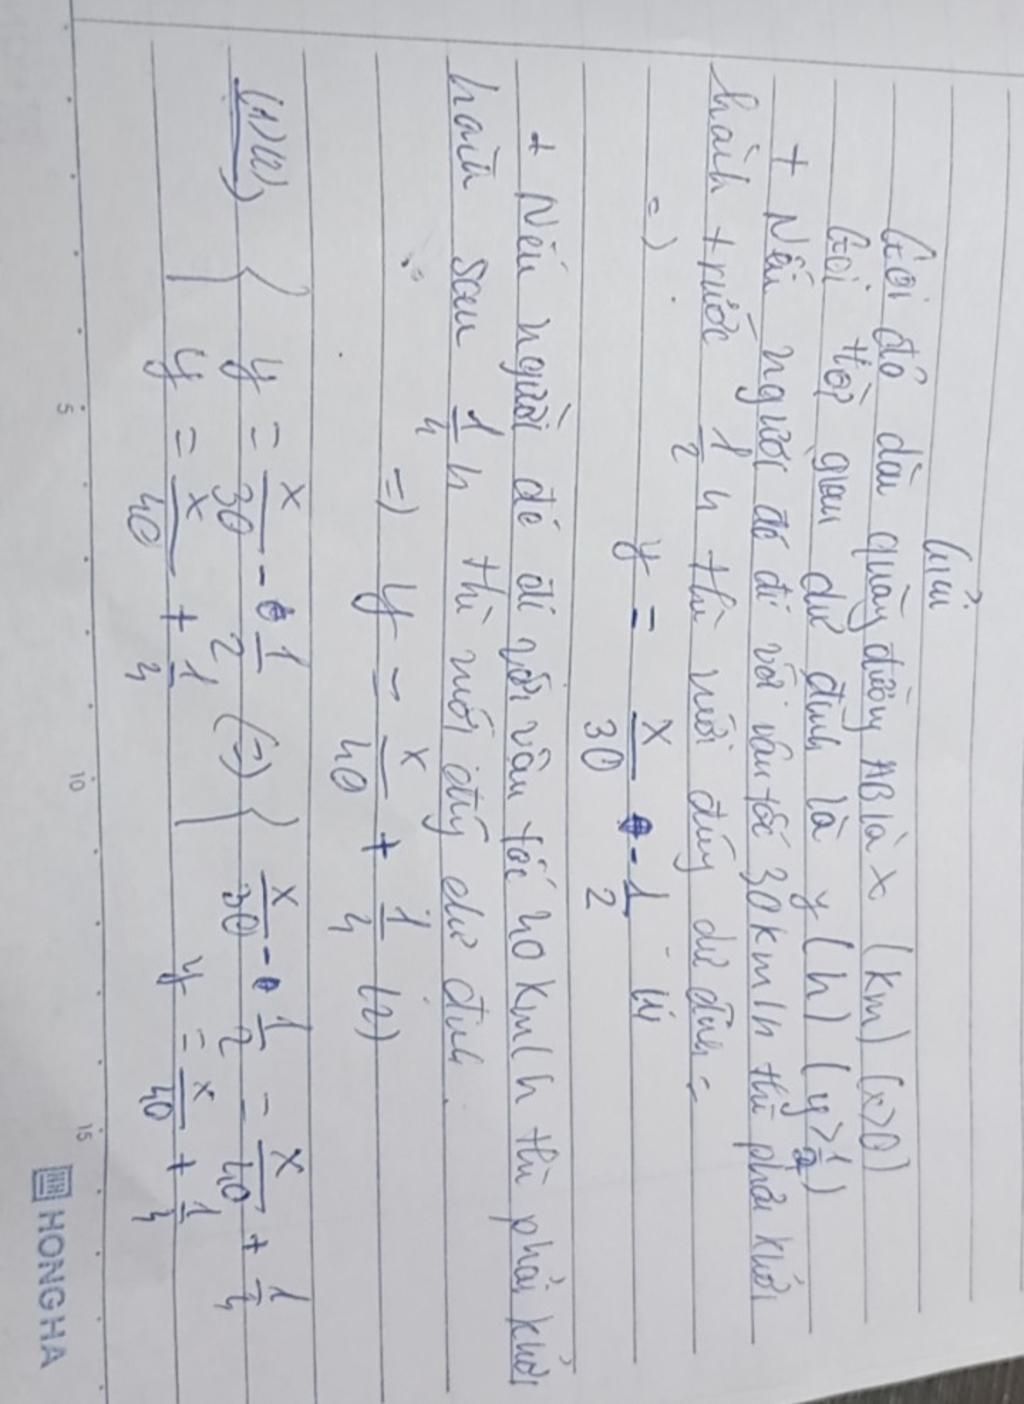 Giải
Gọi độ dài quãng đường AB là x (km) (x>0)
Gọi thời gian dự định là y (h) (y > 1/2)
+ Nếu người đó đi với vận tốc 30km/h thì phải khởi
hành trước 1/2 h thì mới đúng dự định
=> y = x/30 - 1/2 (1)
+ Nếu người đó đi với vận tốc 40 km/h thì phải khởi
hành sau 1/4 h thì mới đúng dự định.
=> y = x/40 + 1/4 (2)
(1)(2) { y = x/30 - 1/2 (=) { x/30 - 1/2 = x/40 + 1/4
y = x/40 + 1/4 y = x/40 + 1/4
5 10 15 HONG HA